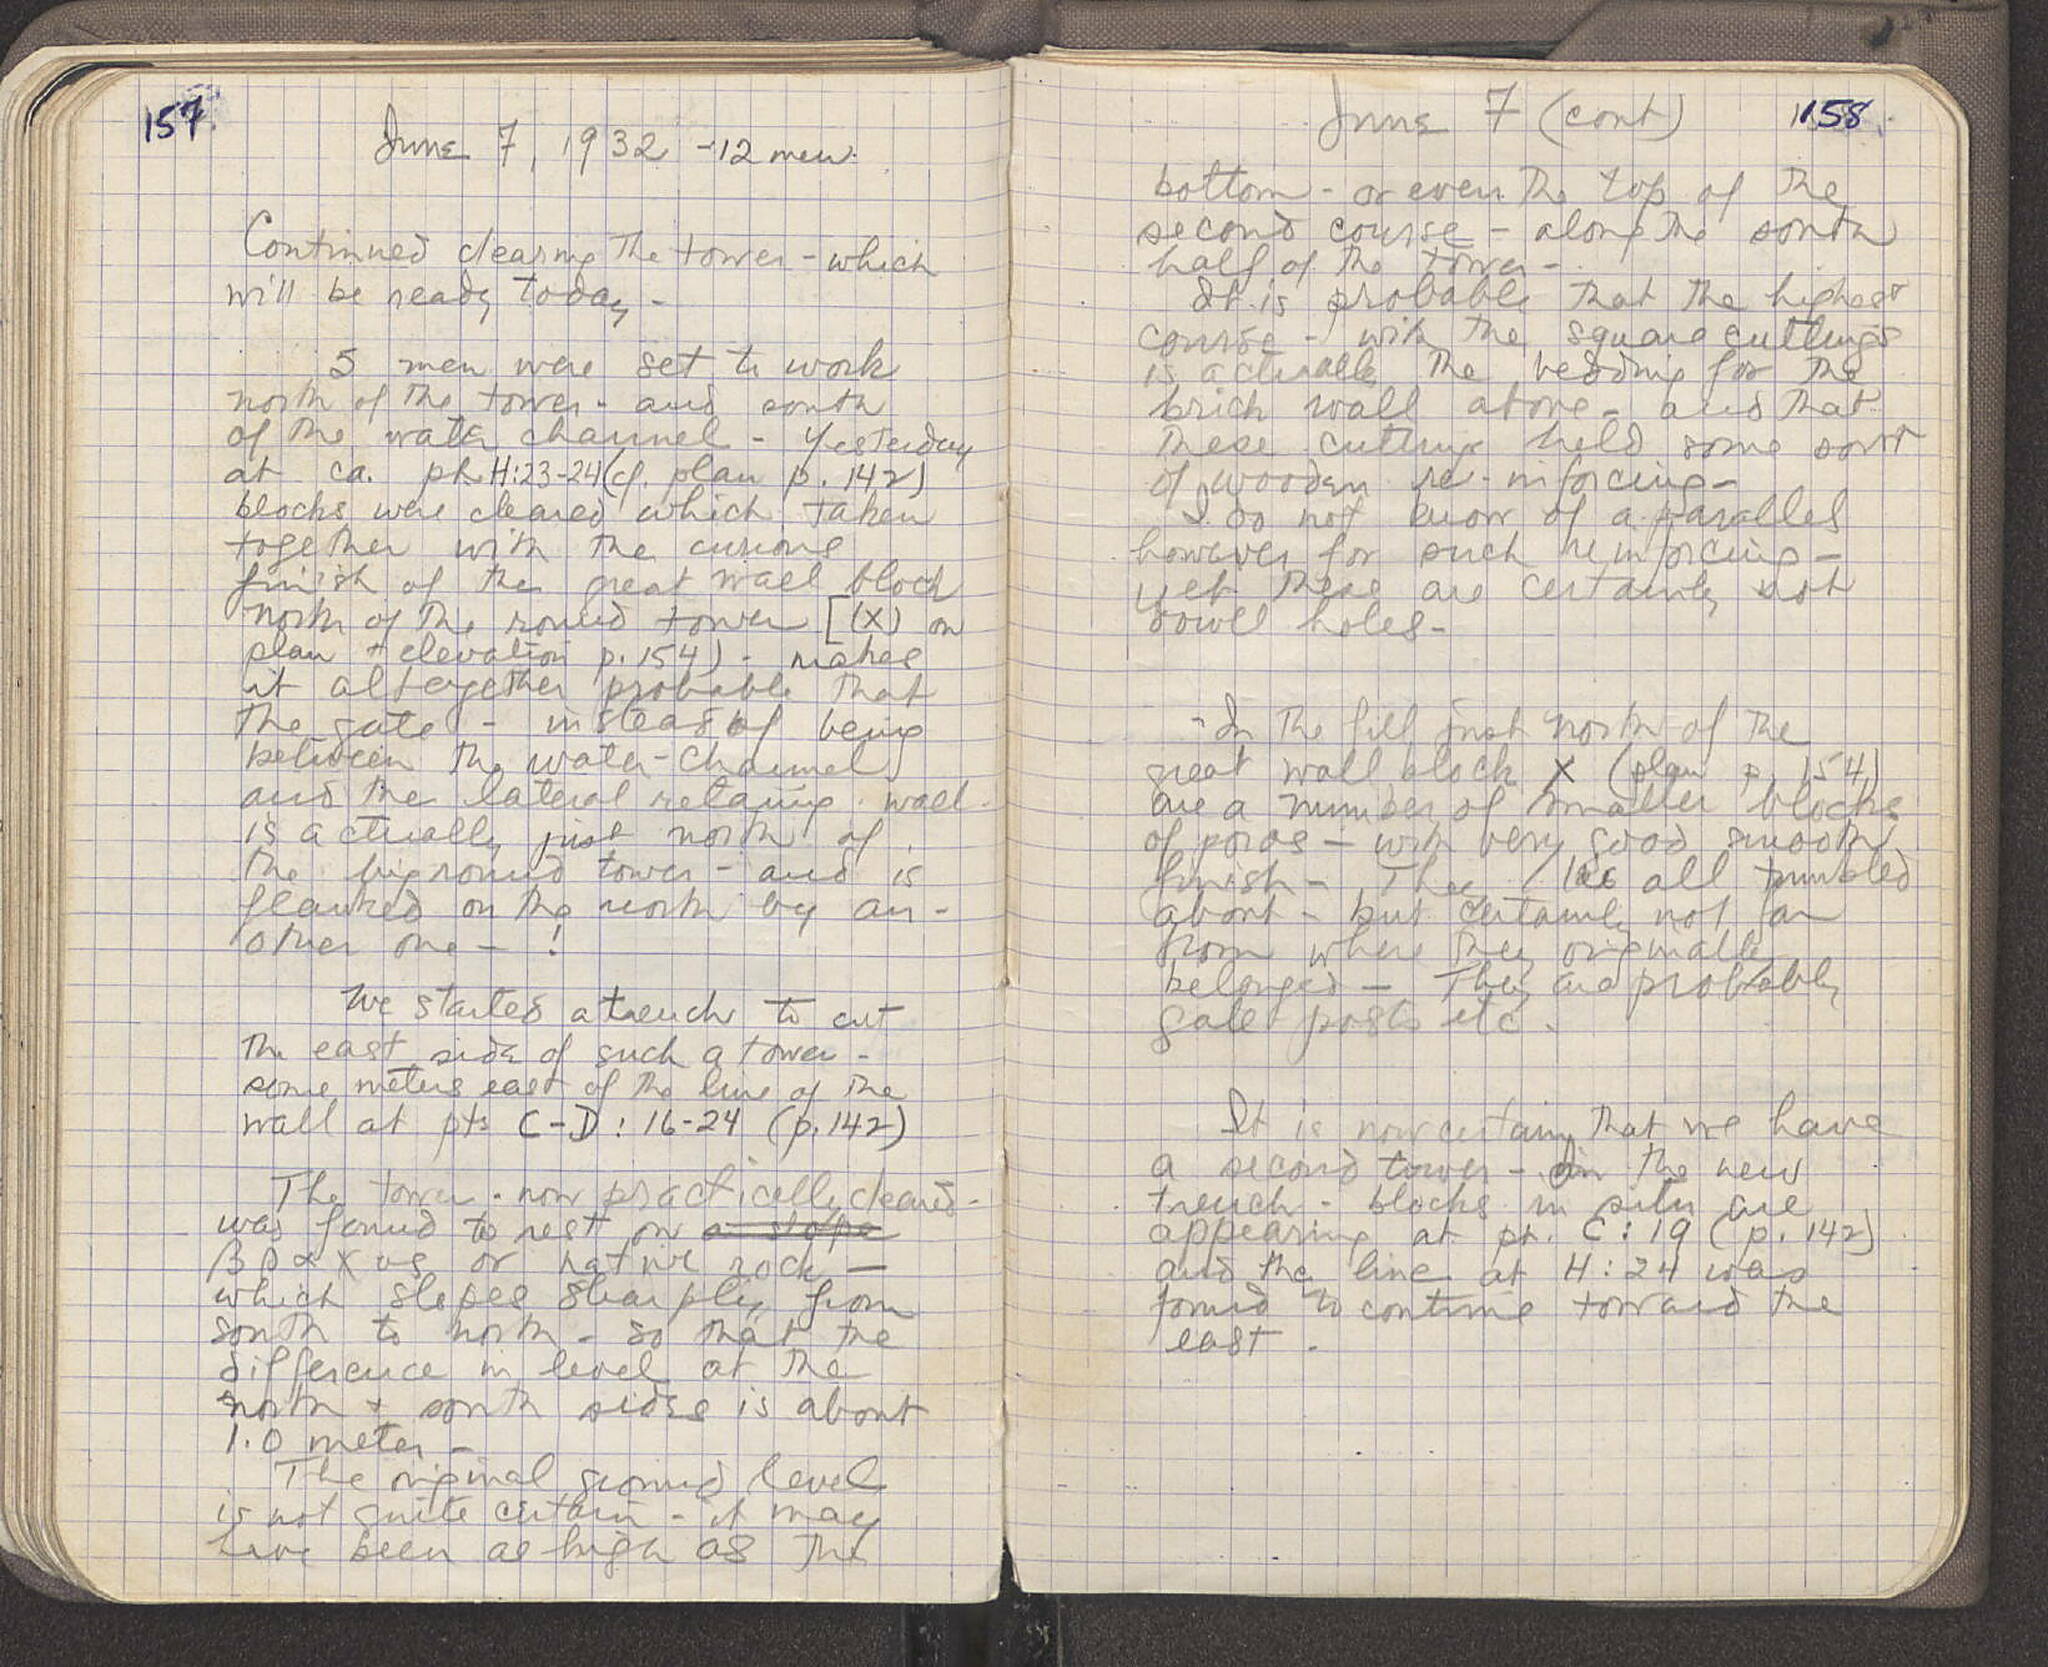 157
June 7, 1932 - 12 men.
Continued clearing the tower - which
will be ready today -
5 men were set to work
north of the tower - and south
of the water channel - Yesterday
at ca. pt. H:23-24 (cf. plan p. 142)
blocks were cleared which taken
together with the curious
finish of the great wall block
north of the round tower [(X) on
plan + elevation p. 154) - makes
it altogether probable that
the gate - instead of being
between the water-channel
and the lateral retaing wall
is actually just north of
the big round tower - and is
flanked on the north by an-
other one - !
We started a trench to cut
the east side of such a tower -
some meters east of the line of the
wall at pts C-D : 16-24 (p. 142)
The tower - now practically cleared -
was found to rest on a slope
βραχος or native rock -
which slopes sharply from
south to north - so that the
difference in level at the
north + south sides is about
1.0 meter -
The original ground level
is not quite certain - it may
have been as high as the
June 7 (cont) 158
bottom - or even the top of the
second course - along the south
half of the tower -
It is probable that the highest
course - with the square cuttings
is actually the bedding for the
brick wall above - and that
these cuttings held some sort
of wooden re-inforcing -
I do not know of a parallel
however for such reinforcing -
yet these are certainly not
dowel holes -
- In the fill just north of the
great wall block X (plan p. 154)
are a number of smaller blocks
of poros - with very good smooth
finish - They lie all tumbled
about - but certainly not far
from where they originally
belonged - They are probably
gate posts etc.
It is now certain that we have
a second tower - in the new
trench - blocks in situ are
appearing at pt. C:19 (p. 142)
and the line at H:24 was
found to continue toward the
east.